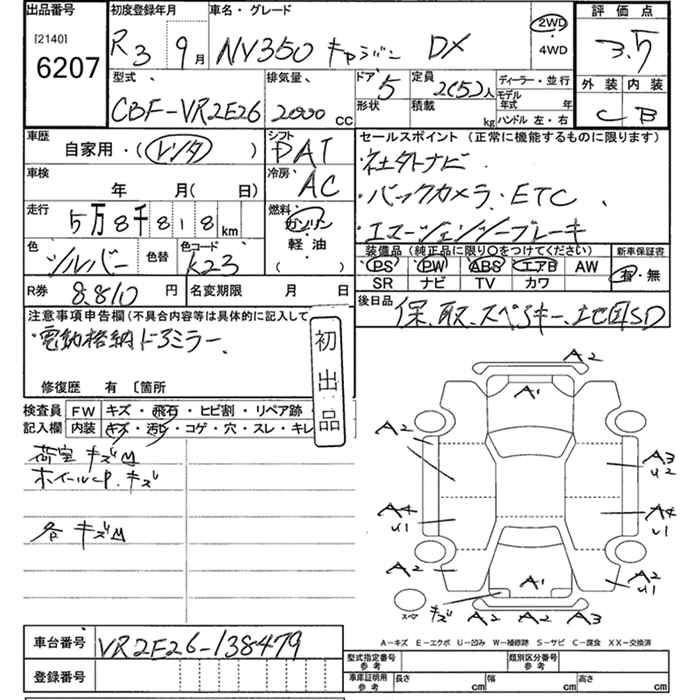 出品番号
[2140]
6207
初度登録年月
R3 9月
車名・グレード
NV350 キャラバン DX
2WD
・
4WD
評価点
3.5
外装 内装
C B
型式
CBF-VR2E26
排気量
2000 CC
ドア 5
形状
定員 2(5)人
積載 kg
ディーラー・並行
モデル年式 年
ハンドル 左・右
車歴
自家用・(レンタ)
シフト
PAT
車検
年 月( 日)
冷房
AC
走行
5万8千818km
燃料
ガソリン
・
軽油
( )
色
シルバー
色替
色コード
K23
R券 8,810円
名変期限 月 日
セールスポイント (正常に機能するものに限ります)
・社外ナビ
・バックカメラ、ETC、
・エマージェンシーブレーキ
装備品 (純正品に限り○をつけてください)
PS PW ABS エアB AW
SR ナビ TV カワ
新車保証書
有・無
後日品
保、取、スペアキー、地図SD
注意事項申告欄(不具合内容等は具体的に記入して
・電動格納ドアミラー、
修復歴 有 〔箇所
初出品
検査員記入欄
FW キズ・飛石・ヒビ割・リペア跡・
内装 キズ・汚レ・コゲ・穴・スレ・キレ
荷室 キズM
ホイールCP、キズ
各 キズM
A2
A1
A2
A3
U2
A4
U1
A4
U1
A2
A2
U1
A1
キズ
スペア
A2 A2 A3
A-キズ E-エクボ U-凹み W-補修跡 S-サビ C-腐食 XX-交換済
車台番号 VR2E26-138479
登録番号
型式指定番号
参考
類別区分番号
参考
車庫証明用
参考
長さ cm 幅 cm 高さ cm